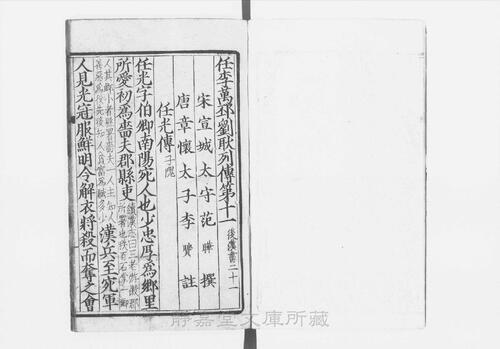 任李萬邳劉耿列傳第十一 後漢書二十一
宋宣城太守范 曄 撰
唐章懷太子李 賢 註
任光傳 子隗
任光字伯卿南陽宛人也少忠厚爲鄉里
所愛初爲鄉嗇夫郡縣吏
漢兵至宛軍
人見光冠服鮮明令解衣將殺而奪之會
靜嘉堂文庫所藏